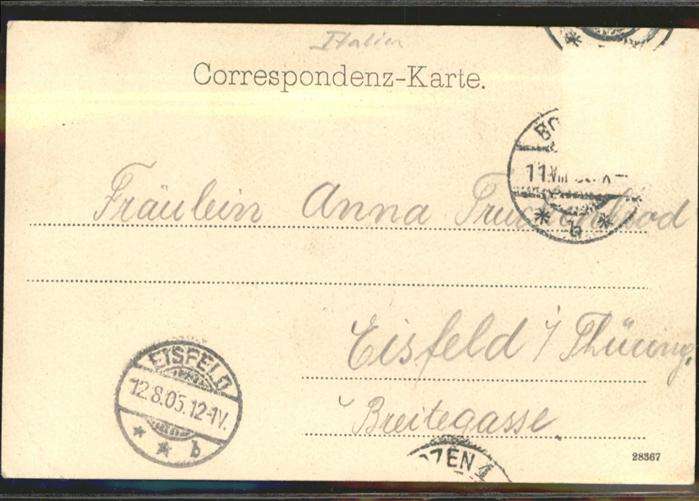 Italien
Correspondenz-Karte.
BO
11 VIII
b
Fräulein Anna
Eisfeld i/ Thüring.
Breitegasse.
EISFELD
12.8.05.12-1V.
* * b
OZEN 1
28367